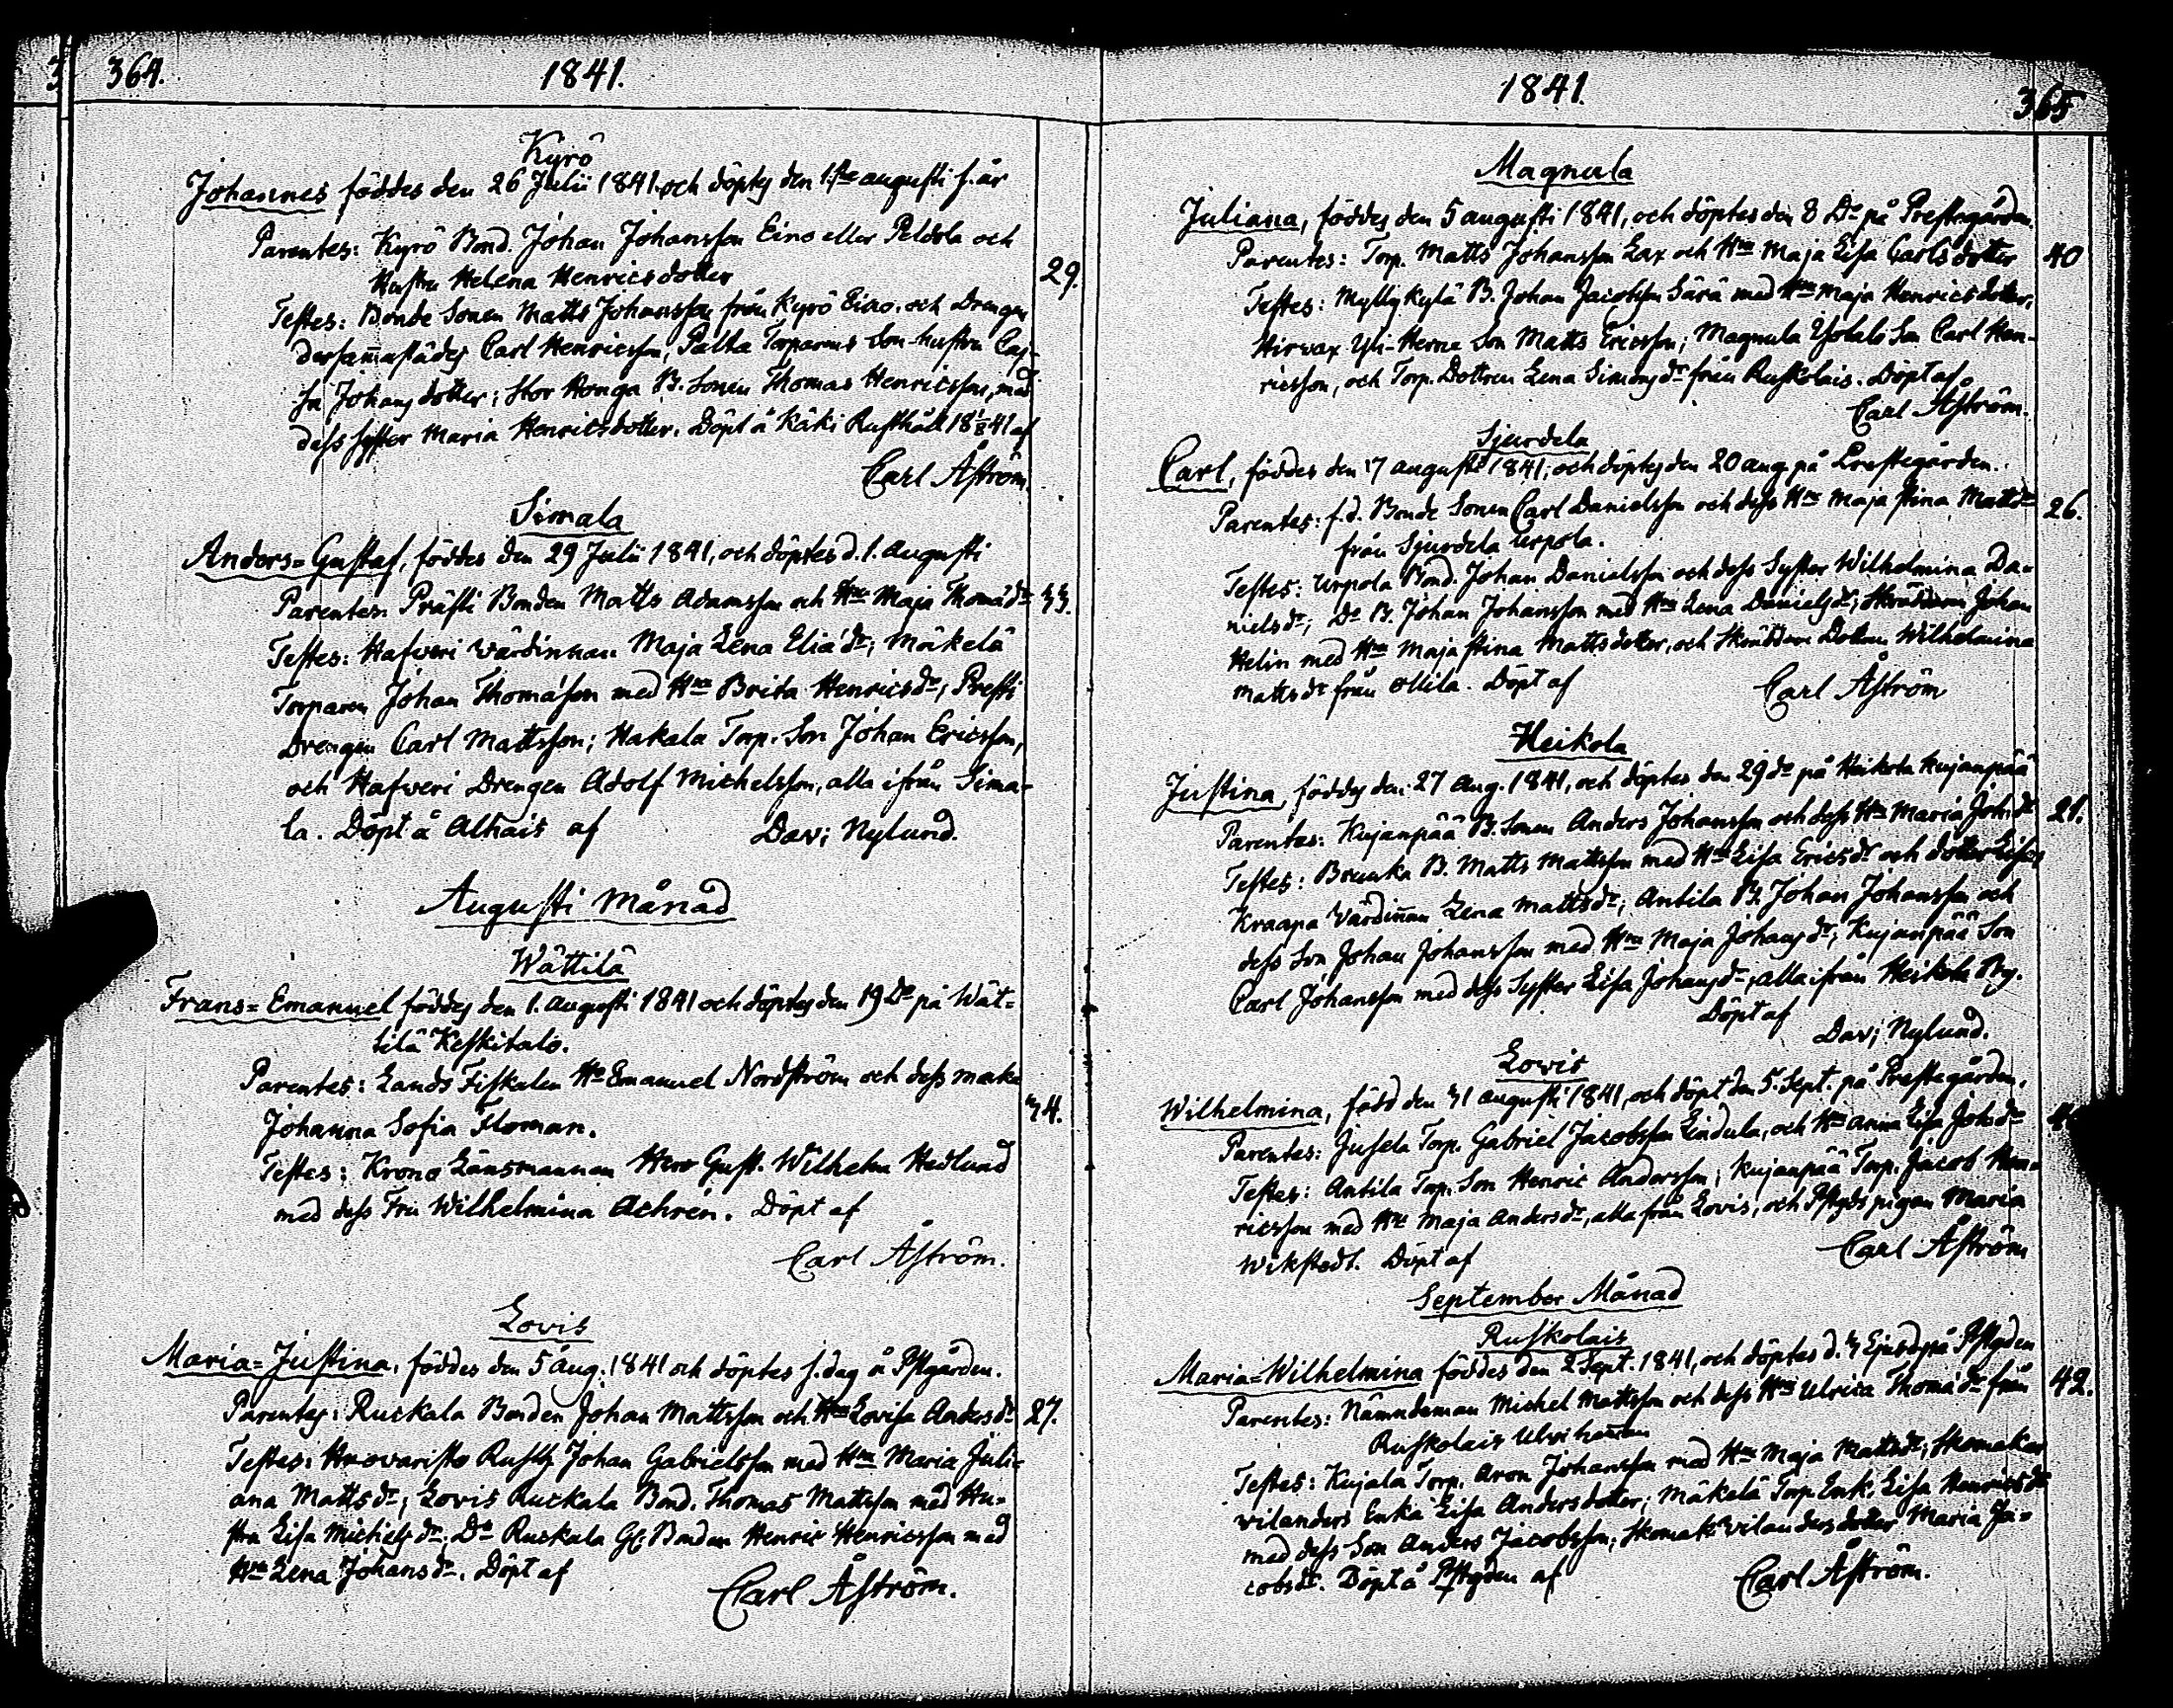 364.
1841.
Kyrö
Johannes föddes den 26 Julii 1841. och döptes den 1:ste augusti s. år
Parentes: Kyrö Bond. Johan Johansson Eino eller Peldola och
Hustru Helena Henricsdotter
29.
Testes: Bonde Sonen Matts Johansson från Kyrö Eino. och Drengen
dersam̄astädes Carl Henricsson, Palta Torparens Son-hustru Caj-
sa Johansdotter; Stor Honga B. Sonen Thomas Henricsson, med
dess syster Maria Henricsdotter. Döpt å Käki Rusthåll 18 1/8 41 af
Carl Åström.
Simala
Anders=Gustaf, föddes den 29 Julii 1841, och döptes d. 1. augusti
Parentes. Prästi Bonden Matts Adamsson och Hru Maja Thomædr
33.
Testes: Hafveri Wärdinnan Maja Lena Eliædr; Mäkelä
Torparen Johan Thomæson med Hru Brita Henricsdr; Presti
Drengen Carl Mattsson; Hakala Torp. Son Johan Ericsson,
och Hafveri Drengen Adolf Michelsson, alla ifrån Sima-
la. Döpt å Alhais af Dav; Nylund.
Augusti Månad
Wättilä
Frans=Emanuel föddes den 1. augusti 1841 och döptes den 19 Do på Wät-
tilä Keskitalo.
Parentes: Lands Fiskalen Hr Emanuel Nordström och dess maka
34.
Johanna Sofia Floman.
Testes: Krono Länsmannen Herr Gust. Wilhelm Hedlund
med dess Fru Wilhelmina Achrén. Döpt af
Carl Åström.
Lovis
Maria=Justina, föddes den 5 Aug. 1841 och döptes s. dag å Pstgården.
Parentes: Ruckala Bonden Johan Mattsson och Hru Lovisa Andersdr
27.
Testes: Huovaristo Rusth. Johan Gabrielsson med Hru Maria Juli-
ana Mattsdr; Lovis Ruckala Bond. Thomas Mattsson med Hu-
stru Lisa Michelsdr; Do Ruckala Gl. Bonden Henric Henricsson med
Hru Lena Johansdr. Döpt af
Carl Åström.
1841.
365
Magnula
Juliana, föddes den 5 augusti 1841, och döptes den 8 Do på Prestegården.
Parentes: Torp. Matts Johansson Lax och Hru Maja Lisa Carlsdotter
40
Testes: Myllykylä B. Johan Jacobsson Särä med Hru Maja Henricsdotter,
Hirvax Yli-Herna Son Matts Ericsson; Magnula Isotalo Son Carl Hen-
ricsson, och Torp. Dottren Lena Simonsdr från Ruskolais. Döpt af
Carl Åström.
Sjurdela
Carl, föddes den 17 augusti 1841, och döptes den 20 aug. på Prestegården.
Parentes: f.d. Bonde Sonen Carl Danielsson och dess Hru Maja Stina Mattsdr
26.
från Sjurdela Urpola.
Testes: Urpola Bond. Johan Danielsson och dess Syster Wilhelmina Da-
nielsdr; Do B. Johan Johansson med Hru Lena Danielsdr; Skräddaren Johan
Helin med Hru Maja Stina Mattsdotter, och Skräddare Dottren Wilhelmina
Mattsdr från Ollila. Döpt af Carl Åström
Heikola
Justina, föddes den 27 Aug. 1841, och döptes den 29 do på Heikola Kujanpää
Parentes: Kujanpää B. Sonen Anders Johansson och dess Hru Maria Joh:dr
21.
Testes: Brunka B. Matts Mattsson med Hru Lisa Ericsdr och dotter Lisa;
Kraapa Wärdin̄an Lena Mattsdr; Antila B. Johan Johansson och
dess Son Johan Johansson med Hru Maja Johansdr; Kujanpää Son
Carl Johansson med dess Syster Lisa Johansdr, alla ifrån Heikola By.
Döpt af
Dav; Nylund.
Lovis
Wilhelmina, född den 31 augusti 1841, och döpt den 5 Sept. på Prestegården.
Parentes: Jusela Torp. Gabriel Jacobsson Lindula, och Hru Anna Lisa Johsdr
Testes: Antila Torp. Son Henric Andersson; Kujanpää Torp. Jacob Hen-
ricsson med Hru Maja Andersdr, alla från Lovis, och Pstgds pigan Maria
Wikstedt. Döpt af Carl Åström
September Månad
Ruskolais
Maria=Wilhelmina föddes den 2 Sept. 1841, och döptes d. 3 Ejusd. på Pstgden
Parentes: Nämndeman Michel Mattsson och dess Hru Ulrica Thomædr från
42.
Ruskolais
Testes: Kujala Torp. Aron Johansson med Hru Maja Mattsdr; Skomakar
Vilanders Enka Lisa Andersdotter; Mäkelä Torp. Enk. Lisa Henricsdr
med dess Son Anders Jacobsson; Skomak: Vilanders dotter Maria Ja-
cobsdr. Döpt å Pstgden af Carl Åström.